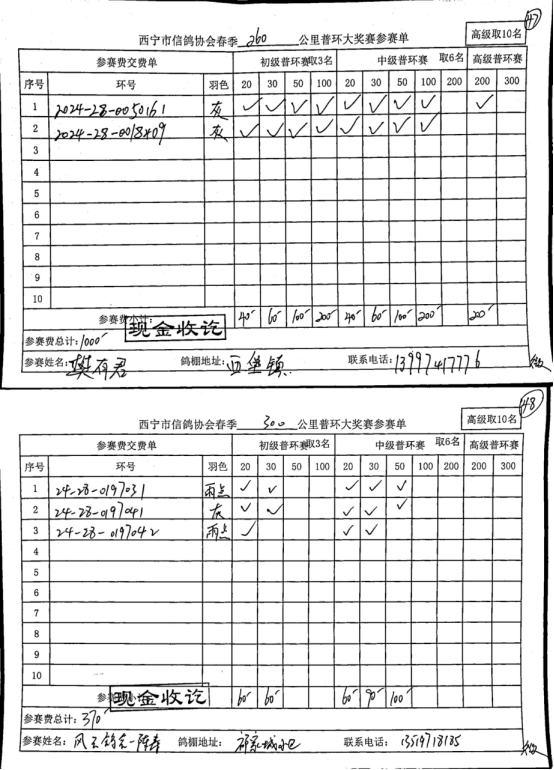 47
西宁市信鸽协会春季 260 公里普环大奖赛参赛单 高级取10名
参赛费交费单 初级普环赛取3名 中级普环赛 取6名 高级普环赛
序号 环号 羽色 20 30 50 100 20 30 50 100 200 200 300
1 2024-28-0050161 灰 ✓ ✓ ✓ ✓ ✓ ✓ ✓ ✓ ✓
2 2024-28-0018409 灰 ✓ ✓ ✓ ✓ ✓ ✓ ✓ ✓
3
4
5
6
7
8
9
10
参赛费小计: 现金收讫 40 60 100 200 40 60 100 200 200
参赛费总计: 1000
参赛姓名: 樊有君 鸽棚地址: 西堡镇 联系电话: 13997417776
48
西宁市信鸽协会春季 300 公里普环大奖赛参赛单 高级取10名
参赛费交费单 初级普环赛取3名 中级普环赛 取6名 高级普环赛
序号 环号 羽色 20 30 50 100 20 30 50 100 200 200 300
1 24-28-0197031 雨点 ✓ ✓ ✓ ✓ ✓
2 24-28-0197041 灰 ✓ ✓ ✓ ✓ ✓
3 24-28-0197042 雨点 ✓ ✓ ✓
4
5
6
7
8
9
10
参 现金收讫 60 60 60 90 100
参赛费总计: 370
参赛姓名: 鸽棚地址: 祁家城 联系电话: 13519718135